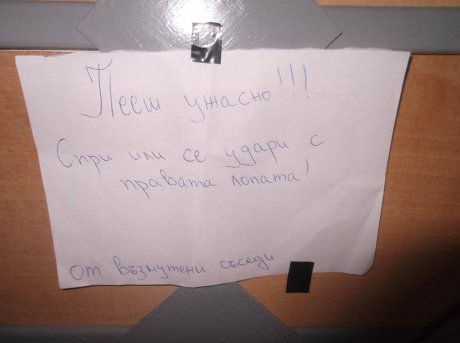 Пееш ужасно!!!
Спри или се удари с
правата лопата!
от възмутени съседи